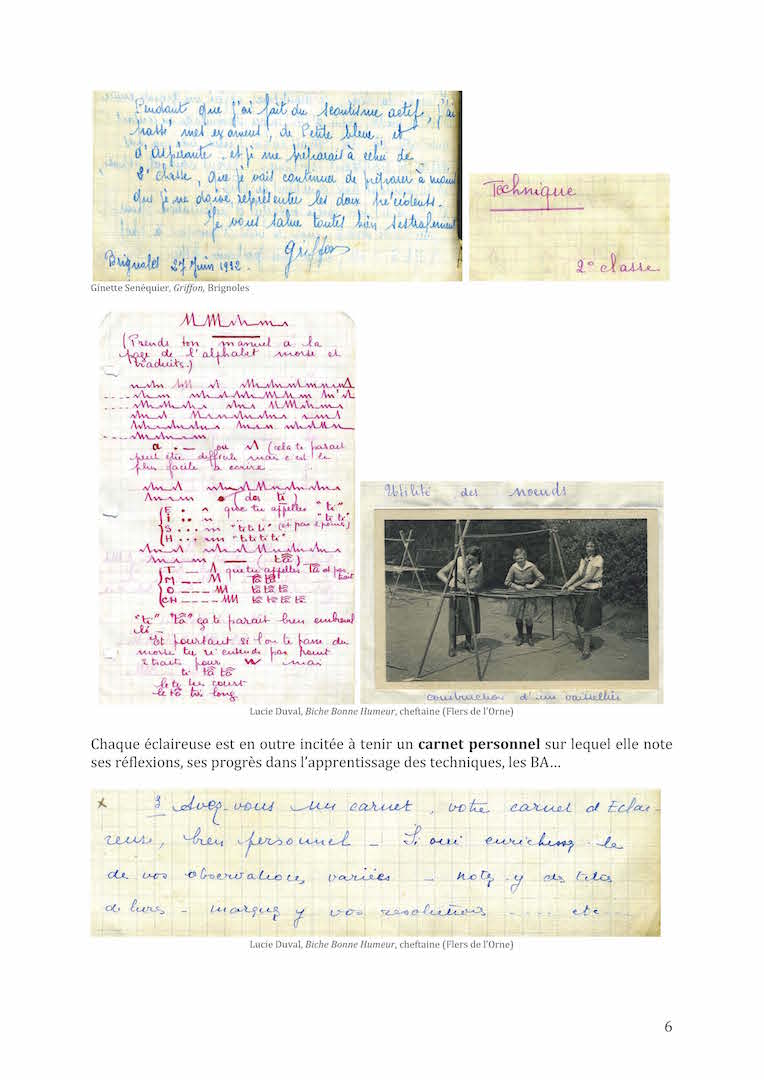 Pendant que j'ai fait du scoutisme actif, j'ai
passé mes examens, de Petite bleue, et
d'Aspirante, et je me préparais à celui de
2e classe, que je vais continuer de préparer à moins
que je ne doive représenter les deux précédents.
Je vous salue toutes bien sestralement
Griffon
Brignoles 27 Juin 1932.
Technique
2e classe
Ginette Senéquier, Griffon, Brignoles
(Prends ton manuel à la
page de l'alphabet morse et
traduits.)
a . — ou (cela te paraît
peut être difficile mais c'est le
plus facile à écrire
(des ti)
E . que tu appelles "ti"
I .. "ti ti"
S ... "ti ti ti" (et pas 3 points)
H .... "ti ti ti ti"
(tâ)
T — que tu appelles tâ et pas trait
M — — tâ tâ
O — — — tâ tâ tâ
CH — — — — tâ tâ tâ tâ
"ti" "tâ" ça te paraît bien embrouil
lé —
Et pourtant si l'on te passe du
morse tu n'entends pas point
2 traits pour W mais
ti tâ tâ
le ti très court
le tâ très long
Utilité des noeuds
construction d'un vaisselier
Lucie Duval, Biche Bonne Humeur, cheftaine (Flers de l'Orne)
Chaque éclaireuse est en outre incitée à tenir un carnet personnel sur lequel elle note
ses réflexions, ses progrès dans l'apprentissage des techniques, les BA…
x 3 Avez-vous un carnet, votre carnet d'Eclai-
reuse, bien personnel — Si oui enrichissez-le
de vos observations variées — notez-y des titres
de livres — marquez y vos résolutions .... etc....
Lucie Duval, Biche Bonne Humeur, cheftaine (Flers de l'Orne)
6